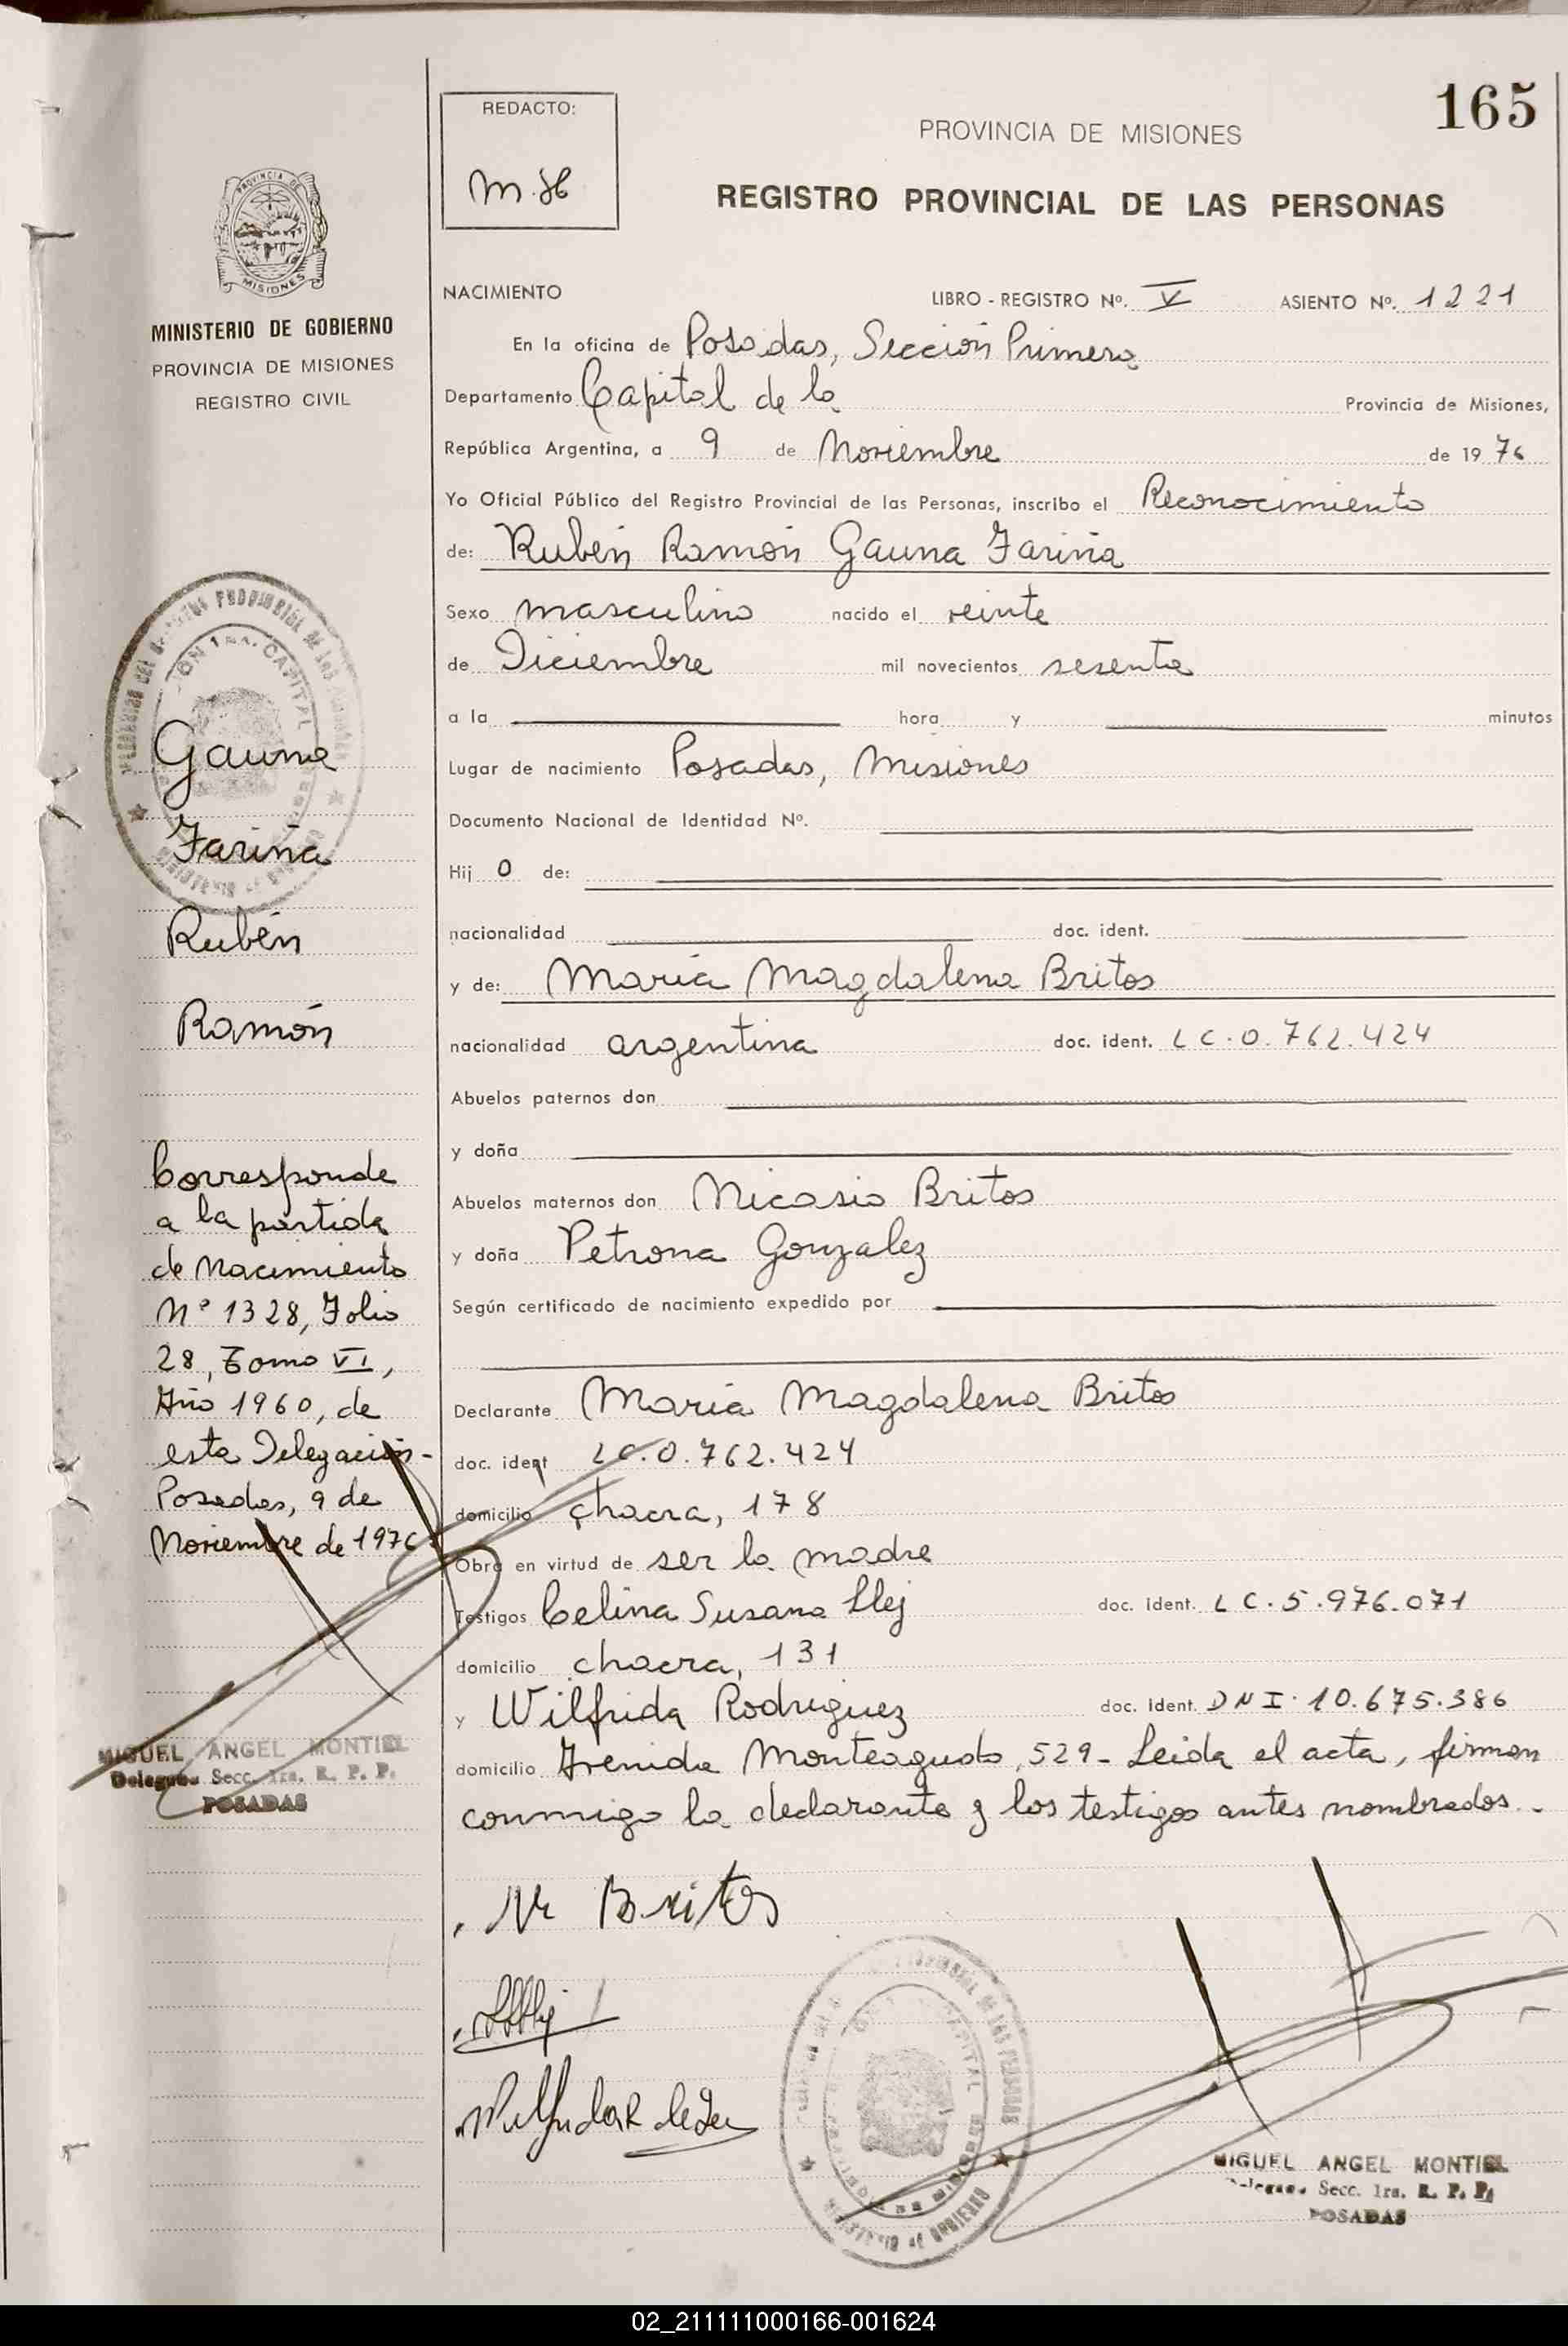 165
REDACTO:
M.H
PROVINCIA DE MISIONES
REGISTRO PROVINCIAL DE LAS PERSONAS
PROVINCIA DE
MISIONES
MINISTERIO DE GOBIERNO
PROVINCIA DE MISIONES
REGISTRO CIVIL
NACIMIENTO LIBRO - REGISTRO Nº. V ASIENTO Nº. 1221
En la oficina de Posadas, Sección Primera
Departamento Capital de la Provincia de Misiones,
República Argentina, a 9 de Noviembre de 1976
Yo Oficial Público del Registro Provincial de las Personas, inscribo el Reconocimiento
de: Rubén Ramón Gauna Fariña
Sexo masculino nacido el veinte
de Diciembre mil novecientos sesenta
a la hora y minutos
Lugar de nacimiento Posadas, Misiones
Documento Nacional de Identidad Nº.
Hij o de:
nacionalidad doc. ident.
y de: María Magdalena Britos
nacionalidad argentina doc. ident. LC.0.762.424
Abuelos paternos don
y doña
Abuelos maternos don Nicasio Britos
y doña Petrona Gonzalez
Según certificado de nacimiento expedido por
Declarante María Magdalena Britos
doc. ident LC.0.762.424
domicilio chacra, 178
Obra en virtud de ser la madre
Testigos Celina Susana Llej doc. ident. LC.5.976.071
domicilio chacra, 131
y Wilfrida Rodriguez doc. ident. DNI.10.675.386
domicilio Avenida Monteagudo, 529- Leída el acta, firman
conmigo la declarante y los testigos antes nombrados.-
Gauna
Fariña
Rubén
Ramón
Corresponde
a la partida
de Nacimiento
Nº 1328, Folio
28, Tomo VI,
Año 1960, de
esta Delegación-
Posadas, 9 de
Noviembre de 1976
MIGUEL ANGEL MONTIEL
Delegado Secc. 1ra. R. P. P.
POSADAS
M Britos
MIGUEL ANGEL MONTIEL
Delegado Secc. 1ra. R. P. P.
POSADAS
02_211111000166-001624